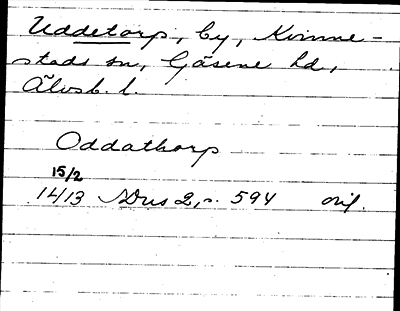 Uddetorp, by, Kvinne-
stads sn, Gäsene hd,
Älvsb. l.
Oddathorp
15/2
1413 SDns 2, s. 594 orig.